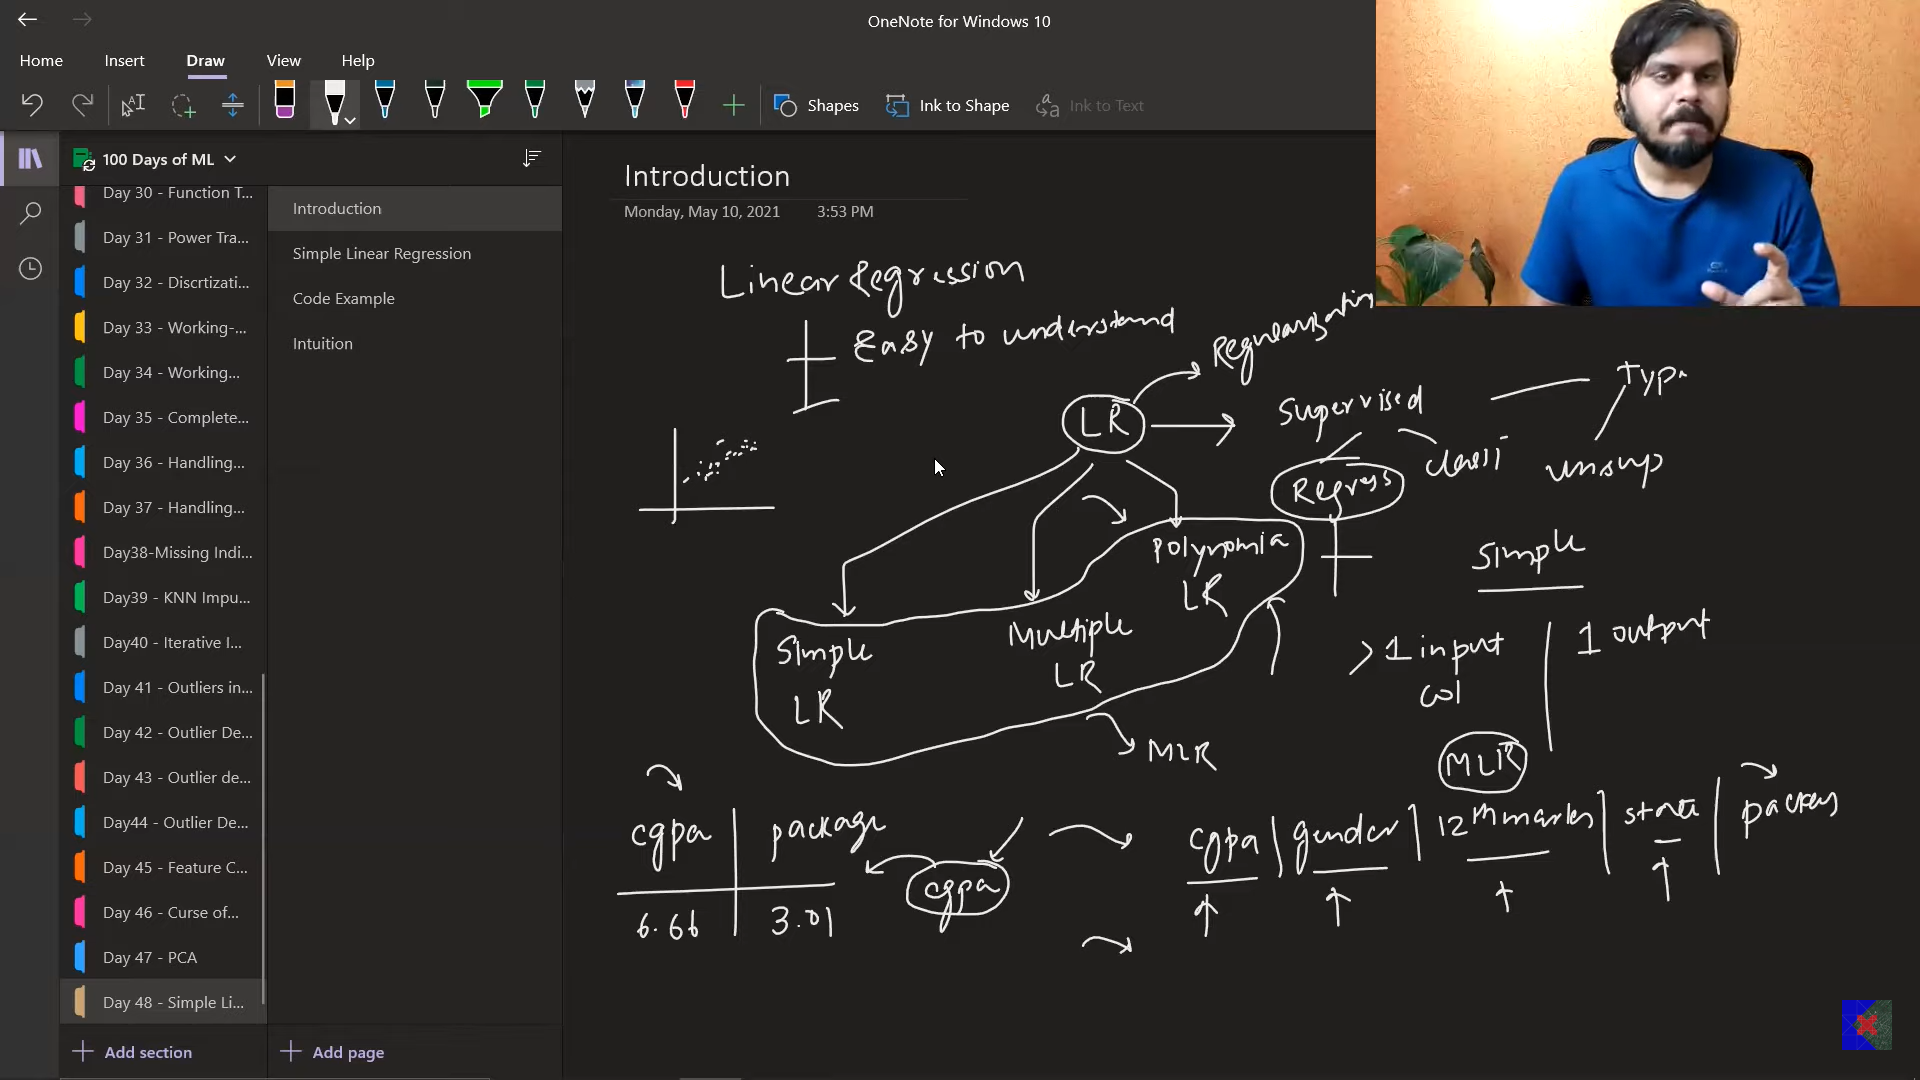 OneNote for Windows 10
Home Insert Draw View Help
Shapes Ink to Shape Ink to Text
100 Days of ML
Day 30 - Function T...
Day 31 - Power Tra...
Day 32 - Discrtizati...
Day 33 - Working-...
Day 34 - Working...
Day 35 - Complete...
Day 36 - Handling...
Day 37 - Handling...
Day38-Missing Indi...
Day39 - KNN Impu...
Day40 - Iterative I...
Day 41 - Outliers in...
Day 42 - Outlier De...
Day 43 - Outlier de...
Day44 - Outlier De...
Day 45 - Feature C...
Day 46 - Curse of...
Day 47 - PCA
Day 48 - Simple Li...
Add section
Introduction
Simple Linear Regression
Code Example
Intuition
Add page
Introduction
Monday, May 10, 2021 3:53 PM
Linear Regression
Easy to understand
Regularization
LR
Supervised
Type
Regress
classi
unsup
Simple
LR
Multiple
LR
Polynomia
LR
MLR
Simple
> 1 input
col
1 output
MLR
cgpa package
6.66 3.01
cgpa
cgpa gender 12th marks state